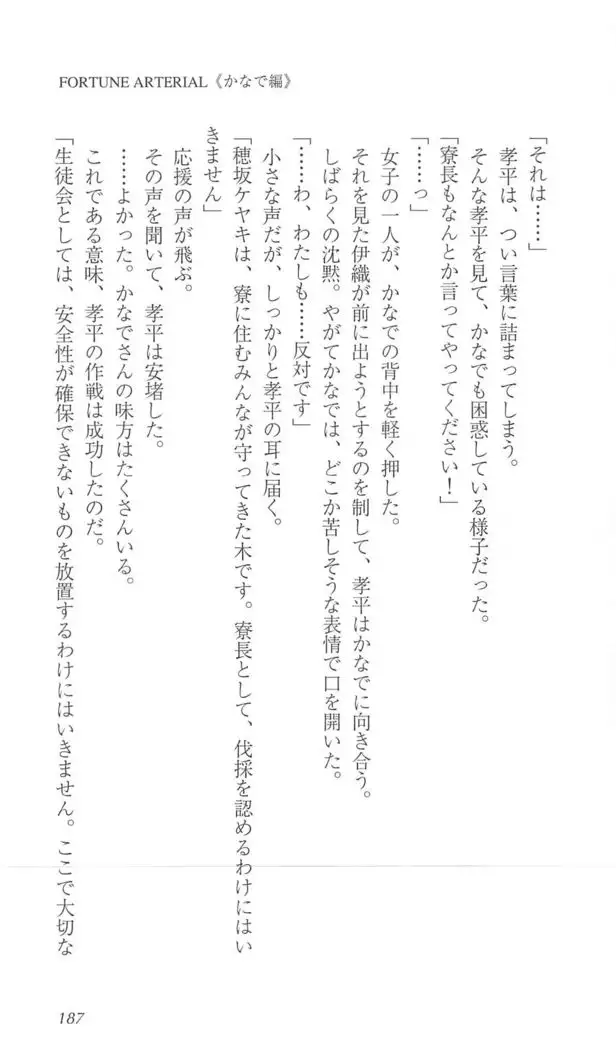 FORTUNE ARTERIAL《かなで編》
「それは……」
孝平は、つい言葉に詰まってしまう。
そんな孝平を見て、かなでも困惑している様子だった。
「寮長もなんとか言ってやってください！」
「……っ」
女子の一人が、かなでの背中を軽く押した。
それを見た伊織が前に出ようとするのを制して、孝平はかなでに向き合う。
しばらくの沈黙。やがてかなでは、どこか苦しそうな表情で口を開いた。
「……わ、わたしも……反対です」
小さな声だが、しっかりと孝平の耳に届く。
「穂坂ケヤキは、寮に住むみんなが守ってきた木です。寮長として、伐採を認めるわけにはい
きません」
応援の声が飛ぶ。
その声を聞いて、孝平は安堵した。
……よかった。かなでさんの味方はたくさんいる。
これである意味、孝平の作戦は成功したのだ。
「生徒会としては、安全性が確保できないものを放置するわけにはいきません。ここで大切な
187